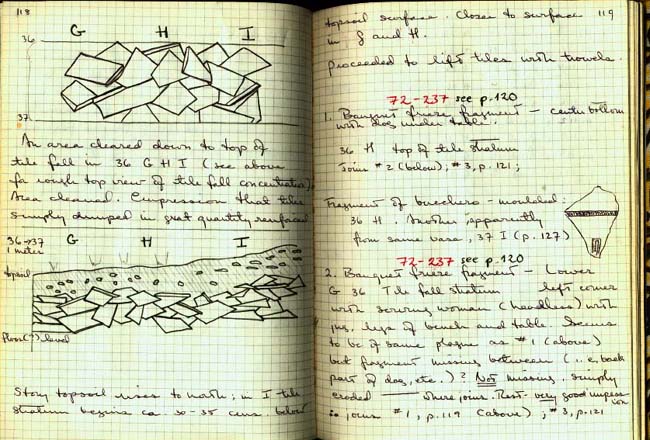 118
G H I
36
37
An area cleared down to top of
tile fall in 36 G H I (see above
for rough top view of tile fall concentration)
Area cleaned. Impression that tiles
simply dumped in great quantity
36→37
1 meter
G H I
topsoil
floor(?) level
Stony topsoil rises to north; in I tile
stratum begins ca. 30-35 cms. below
119
topsoil surface. Closer to surface
in G and H.
Proceeded to lift tiles with trowels.
72-237 see p.120
1. Banquet frieze fragment - center bottom
with dog under table.
36 H top of tile stratum
joins #2 (below); #3, p.121;
Fragment of - moulded.
36 H. Another apparently
from same vase, 37 I (p. 127)
72-237 see p.120
2. Banquet frieze fragment - Lower
G 36 Tile fall stratum left corner
with serving woman (headless) with
jug, legs of bench and table. Seems
to be of same plaque as #1 (above)
but fragment missing between (i.e. back
part of dog, etc.)? Not missing, simply
eroded where joins. Rest - very good impression
joins #1, p.119 (above); #3, p.121